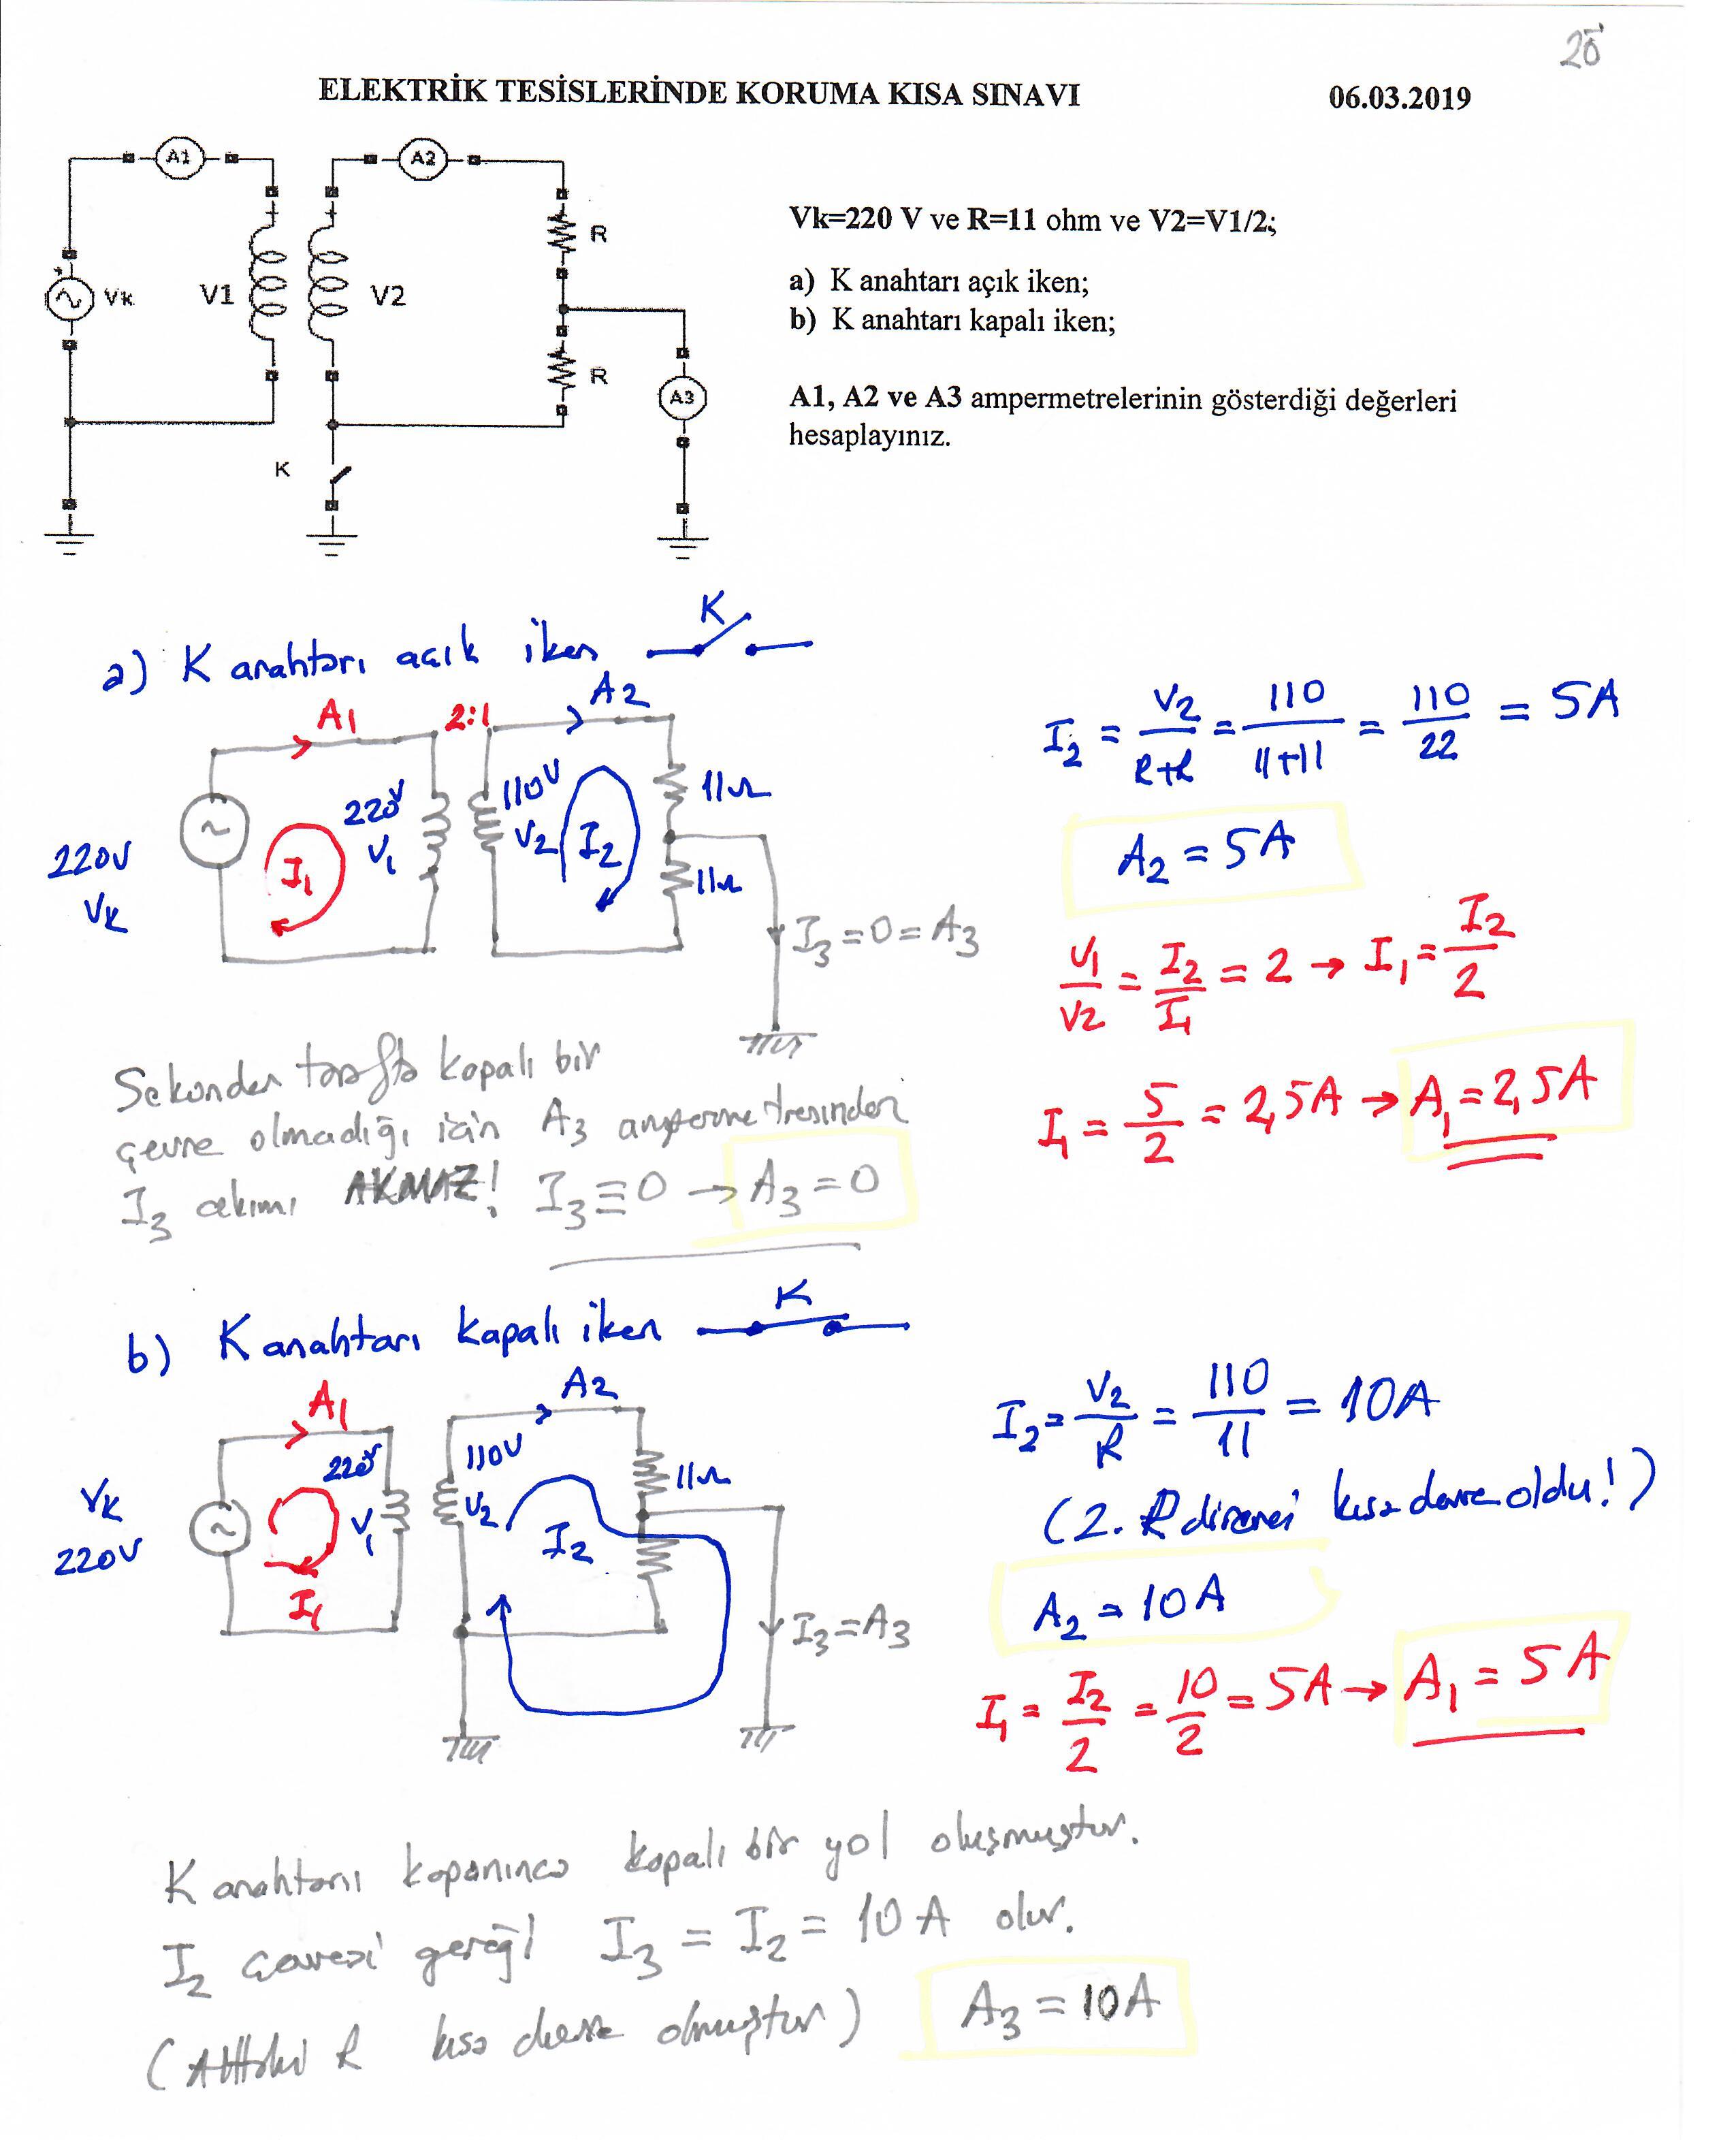 20
ELEKTRİK TESİSLERİNDE KORUMA KISA SINAVI 06.03.2019
A1 A2
Vk=220 V ve R=11 ohm ve V2=V1/2;
R
a) K anahtarı açık iken;
Vk V1 V2
b) K anahtarı kapalı iken;
R
A3
A1, A2 ve A3 ampermetrelerinin gösterdiği değerleri
hesaplayınız.
K
a) K anahtarı açık iken K
A1 2:1 A2
I2 = V2/R+R = 110/11+11 = 110/22 = 5A
220V V1 110V V2 11Ω
220V VK I1 I2 11Ω
A2 = 5A
I3 = 0 = A3
V1/V2 = I2/I1 = 2 → I1 = I2/2
I1 = 5/2 = 2,5A → A1 = 2,5A
Sekonder tarafta kapalı bir
çevre olmadığı için A3 ampermetresinden
I3 akımı AKMAZ! I3 ≡ 0 → A3 = 0
b) K anahtarı kapalı iken K
A1 A2
I2 = V2/R = 110/11 = 10A
220V V1 110V V2 11Ω
VK 220V I1 I2
(2. R direnci kısa devre oldu!)
A2 = 10A
I3 = A3
I1 = I2/2 = 10/2 = 5A → A1 = 5A
K anahtarı kapanınca kapalı bir yol oluşmuştur.
I2 çevresi gereği I3 = I2 = 10A olur.
(Alttaki R kısa devre olmuştur) A3 = 10A